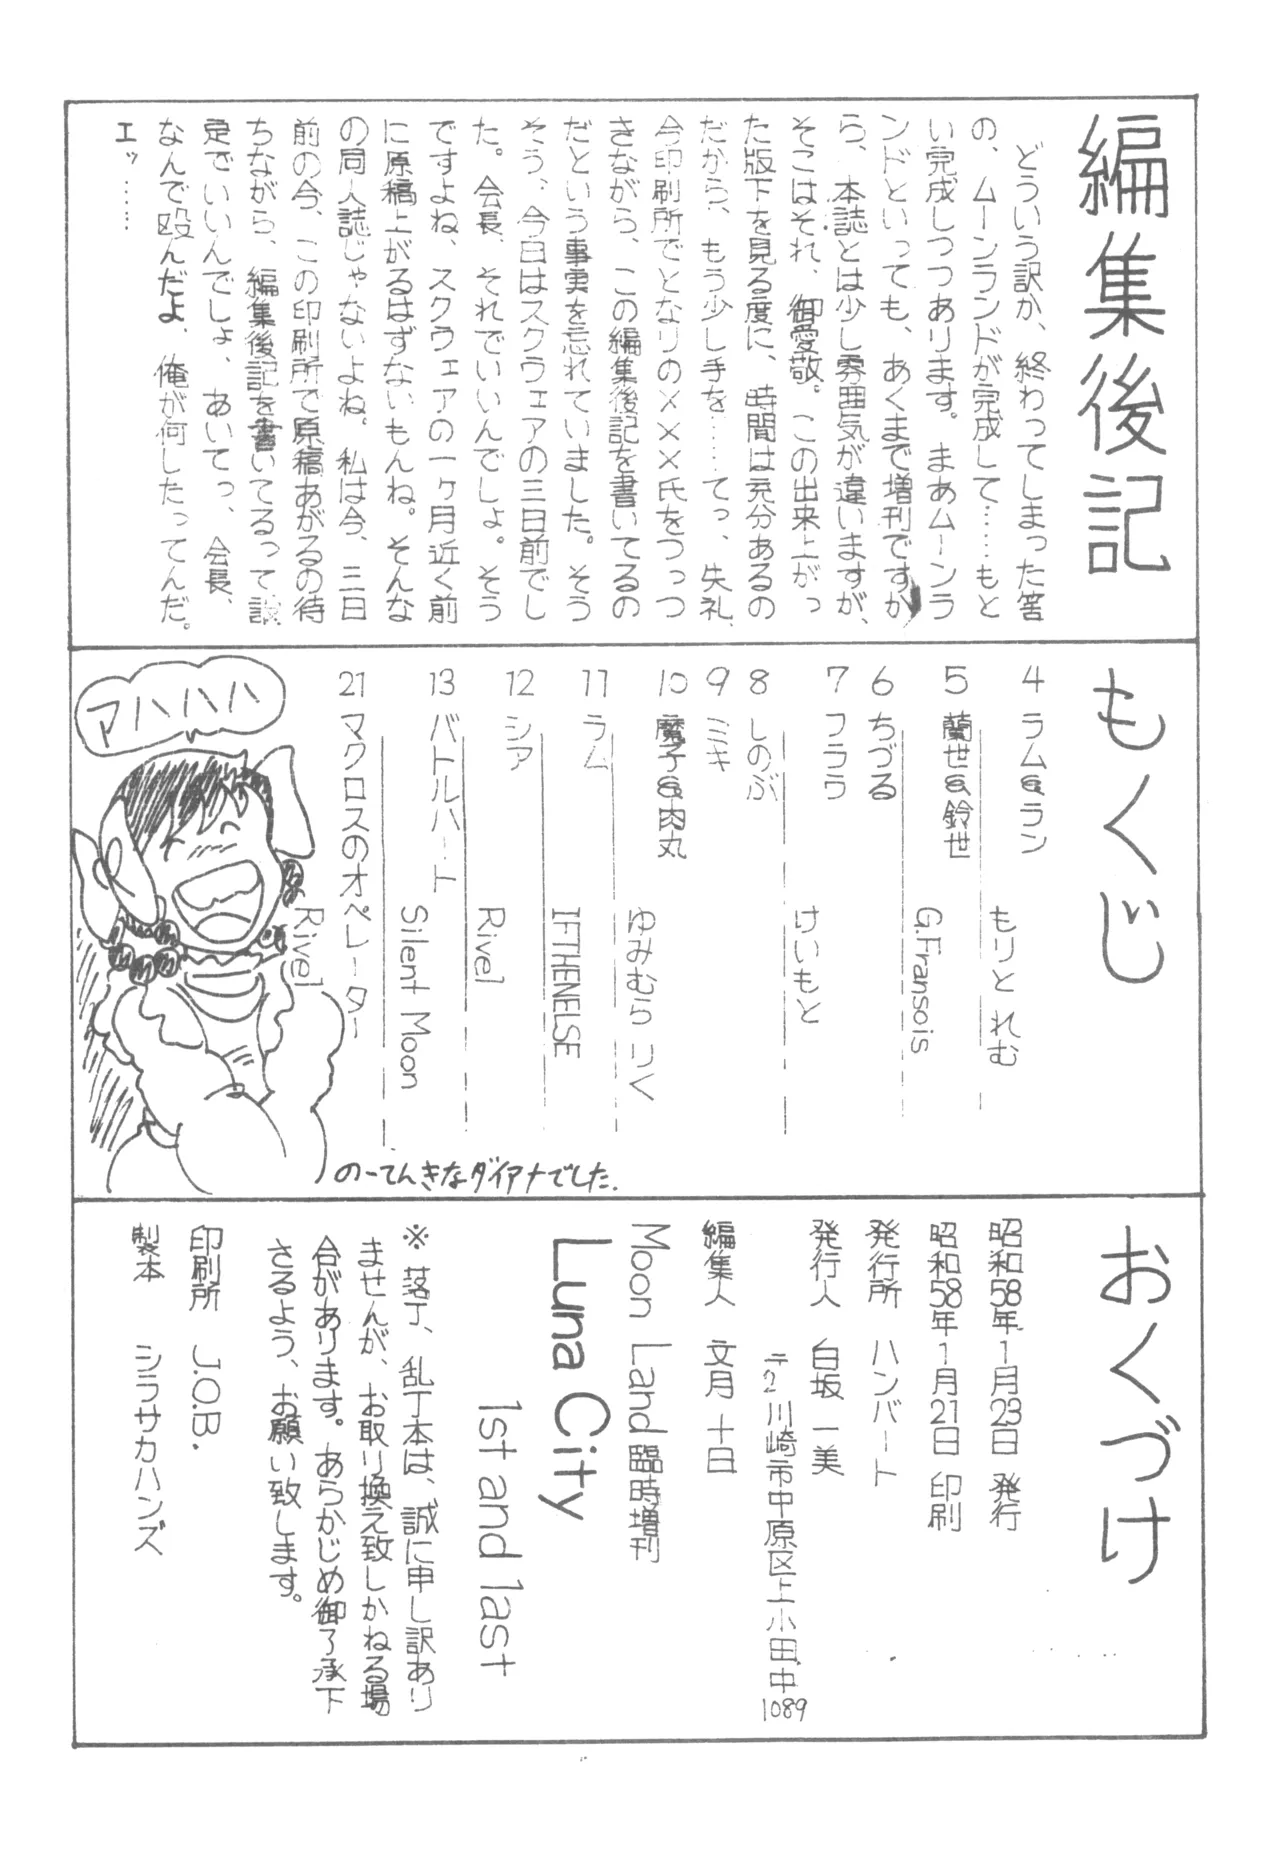 編集後記
どういう訳か、終わってしまった筈
の、ムーンランドが完成して……もと
い完成しつつあります。まあムーンラ
ンドといっても、あくまで増刊ですか
ら、本誌とは少し雰囲気が違いますが、
そこはそれ、御愛敬。この出来上がっ
た版下を見る度に、時間は充分あるの
だから、もう少し手を……てっ、失礼、
今印刷所でとなりの×××氏をつっつ
きながら、この編集後記を書いてるの
だという事実を忘れていました。そう
そう、今日はスクウェアの三日前でし
た。会長、それでいいんでしょ。そう
ですよね、スクウェアの一ヶ月近く前
に原稿上がるはずないもんね。そんな
の同人誌じゃないよね。私は今、三日
前の今、この印刷所で原稿あがるの待
ちながら、編集後記を書いてるって設
定でいいんでしょ、あいてっ、会長、
なんで殴んだよ、俺が何したってんだ。
エッ……
もくじ
4 ラム&ラン
もりとれむ
5 蘭世&鈴世
G.Fransois
6 ちづる
7 フララ
けいもと
8 しのぶ
9 ミキ
10 魔子&肉丸
ゆみむら りく
11 ラム
IFTHENELSE
12 シア
Rivel
13 バトルハート
Silent Moon
21 マクロスのオペレーター
Rivel
アハハハハ
のーてんきなダイアナでした.
おくづけ
昭和58年1月23日 発行
昭和58年1月21日 印刷
発行所 ハンバート
発行人 白坂 一美
〒2 川崎市中原区上小田中
1089
編集人 文月 十日
Moon Land 臨時増刊
Luna City
1st and last
※ 落丁、乱丁本は、誠に申し訳あり
ませんが、お取り換え致しかねる場
合があります。あらかじめ御了承下
さるよう、お願い致します。
印刷所 J.O.B.
製本 シラサカハンズ